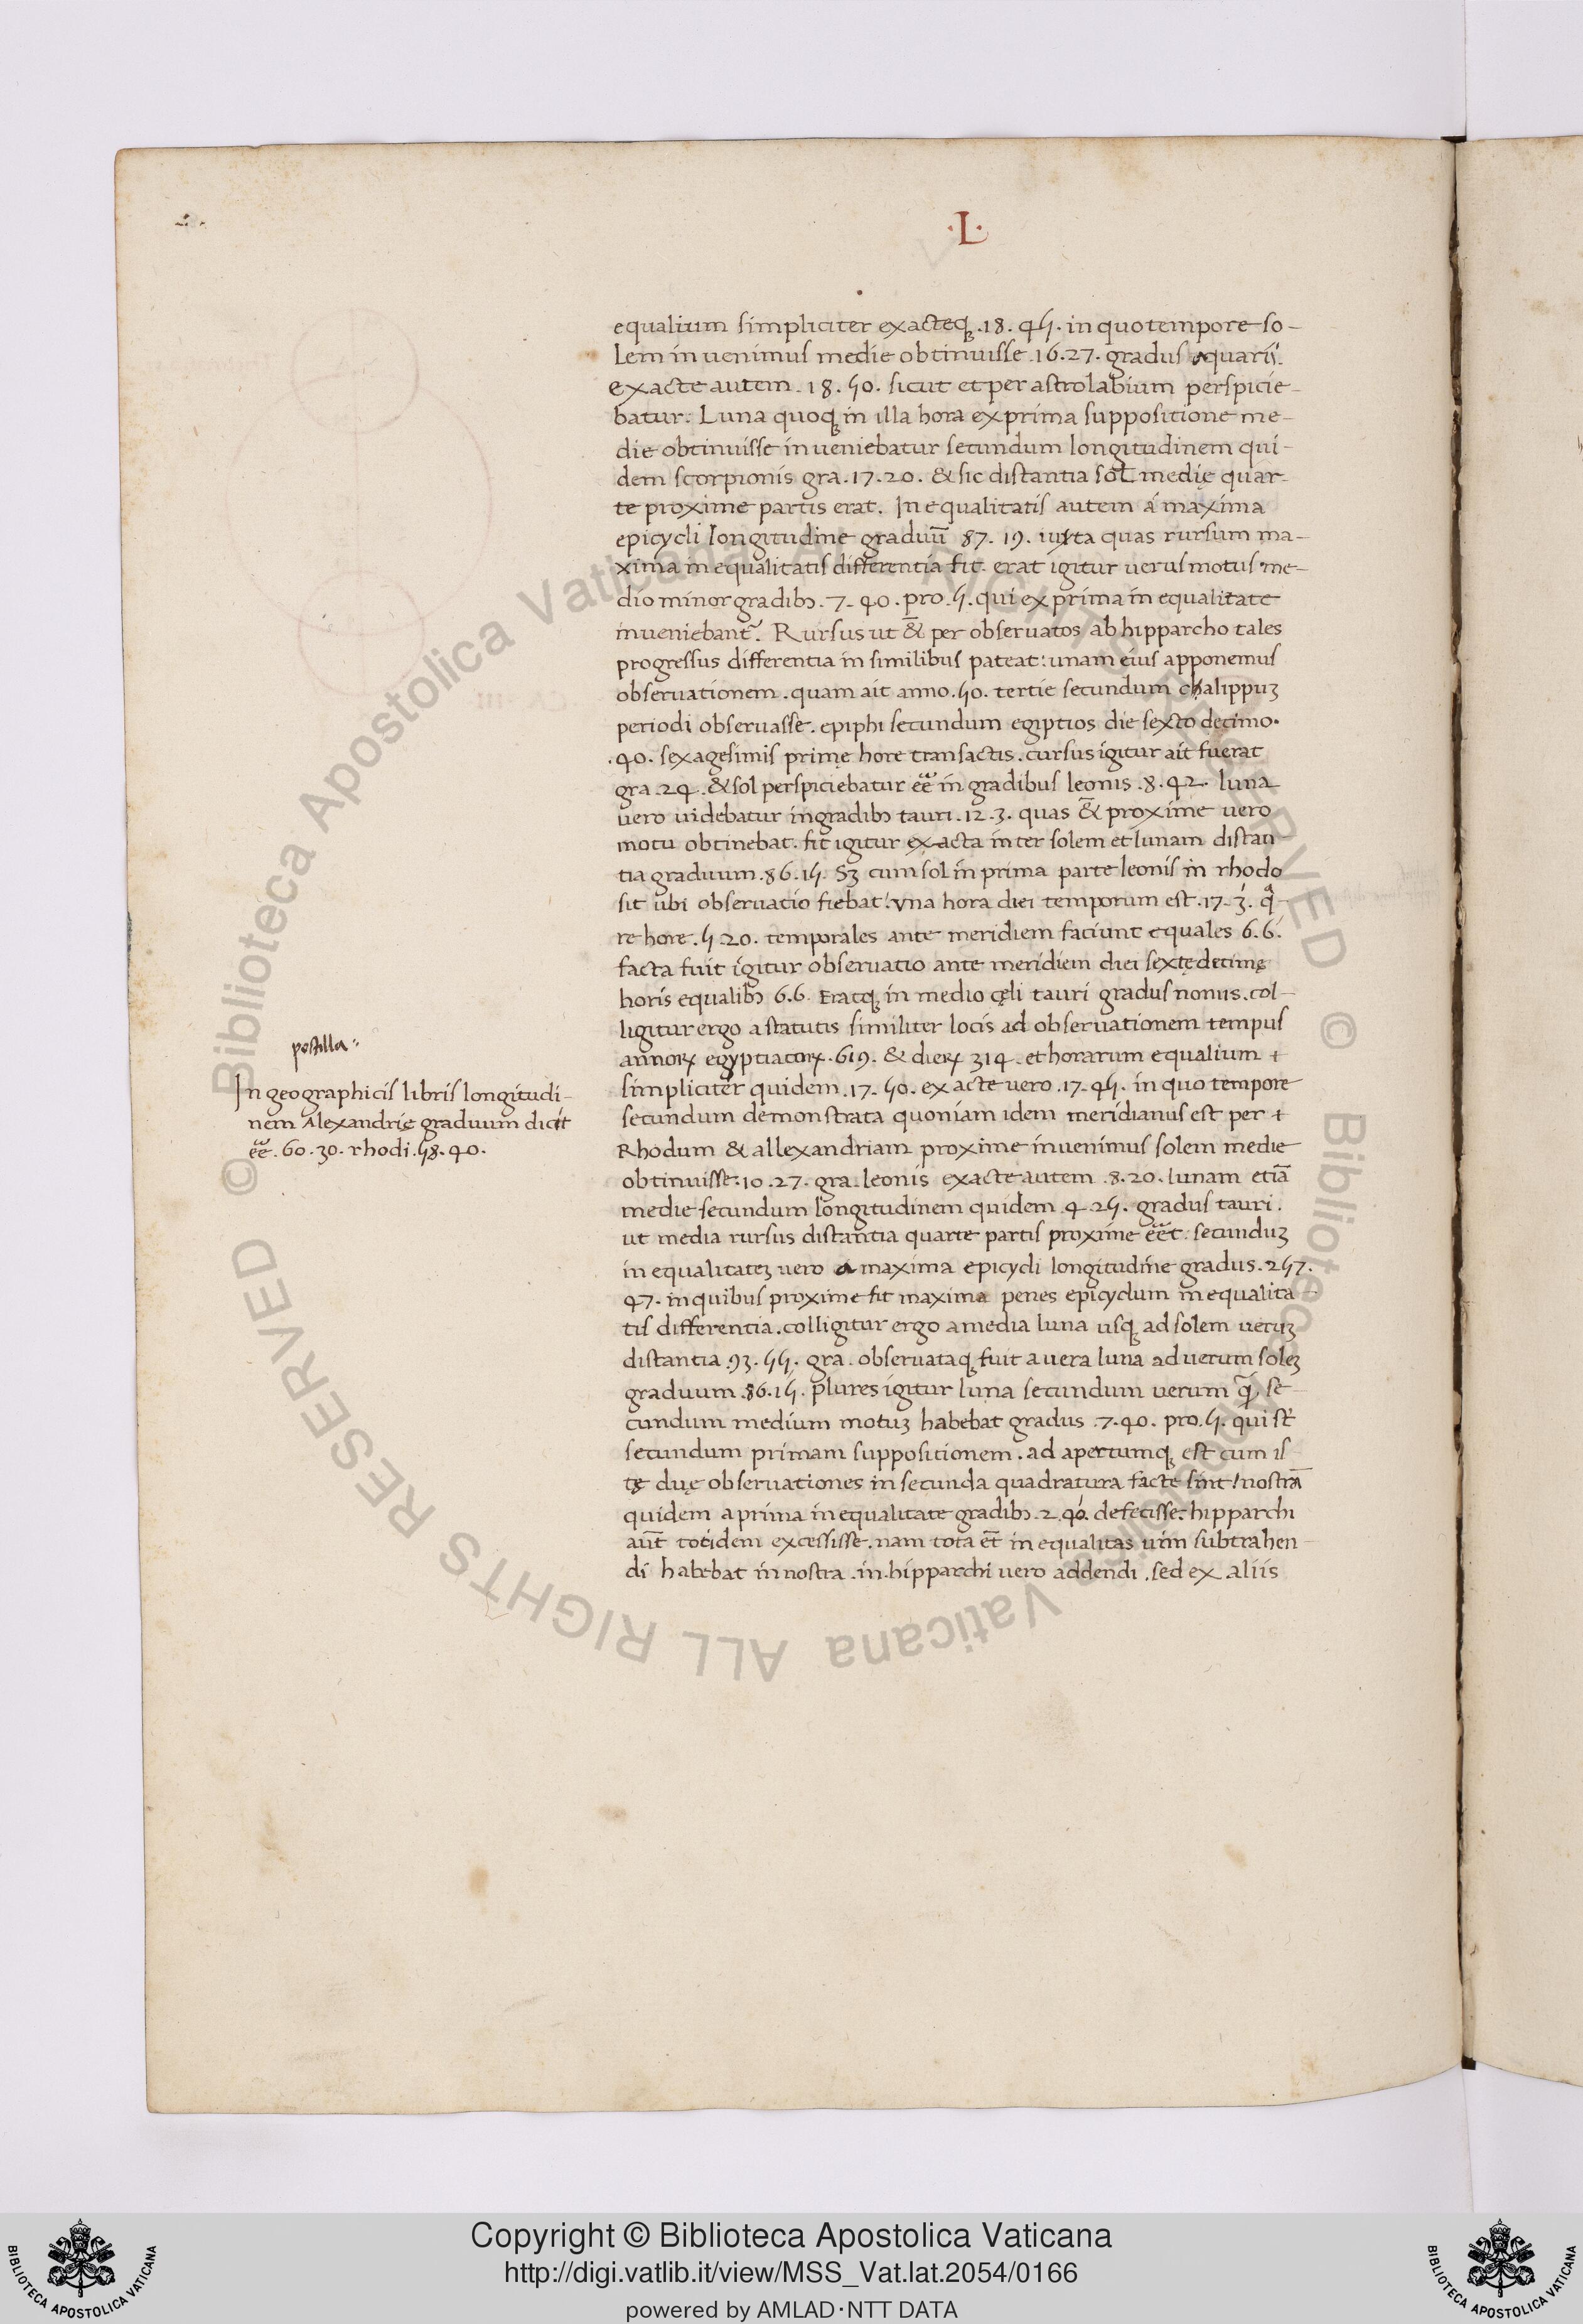 ·L·
equalium simpliciter exacteq3 .18. 45. in quo tempore so-
lem invenimus medie obtinuisse .16.27. gradus aquarii.
exacte autem .18.50. sicut et per astrolabium perspicie-
batur. Luna quoq3 in illa hora ex prima suppositione me-
die obtinuisse inveniebatur secundum longitudinem qui-
dem scorpionis gra.17.20. & sic distantia sol medię quar-
te proxime partis erat. Inequalitatis autem á maxima
epicycli longitudine graduū 87. 19. iuxta quas rursum ma-
xima inequalitatis differentia fit. erat igitur uerus motus me-
dio minor gradibꝫ .7. 40. pro .5. qui ex prima inequalitate
inueniebant᷑. Rursus ut &̄ per obseruatos ab hipparcho tales
progressus differentia in similibus pateat: unam eius apponemus
obseruationem. quam ait anno .50. tertie secundum chalippuꝫ
periodi obseruasse. epiphi secundum egiptios die sexto decimo.
.40. sexagesimis primę hore transactis. cursus igitur ait fuerat
gra .24. & sol perspiciebatur eē in gradibus leonis .8.42. luna
uero uidebatur in gradibꝫ tauri .12.3. quas &̄ proxime uero
motu obtinebat. fit igitur exacta inter solem et lunam distan-
tia graduum .86.15. Sꝫ cum sol in prima parte leonis in rhodo
sit ubi obseruatio fiebat! vna hora diei temporum est .17. 3́. qa-
re hore .5 20. temporales ante meridiem faciunt equales 6.6.
facta fuit igitur obseruatio ante meridiem diei sextędecimę
horis equalibꝫ 6.6. Eratq3 in medio cęli tauri gradus nonus. col-
ligitur ergo a statutis similiter locis ad obseruationem tempus
annoꝝ egyptiacoꝝ .619. & dieꝝ 314. et horarum equalium +
simpliciter quidem .17. 50. exacte uero .17. 45. in quo tempore
secundum demonstrata quoniam idem meridianus est per +
Rhodum & allexandriam proxime inuenimus solem medie
obtinuisse .10.27. gra. leonis exacte autem .8.20. lunam etiā
medie secundum longitudinem quidem .4 25. gradus tauri.
ut media rursus distantia quarte partis proxime eēt. secunduꝫ
inequalitateꝫ uero a maxima epicycli longitudine gradus .257.
47. in quibus proxime fit maxima penes epicyclum inequalita-
tis differentia. colligitur ergo a media luna usq3 ad solem ueruꝫ
distantia .93. 55. gra. obseruataq3 fuit a uera luna ad uerum soleꝫ
graduum .86.15. plures igitur luna secundum uerum q̄ꝫ se-
cundum medium motuꝫ habebat gradus .7.40. pro .5. qui st̄
secundum primam suppositionem. ad apertumq3 est cum is-
tę duę obseruationes in secunda quadratura facte sint! nostrā
quidem a prima inequalitate gradibꝫ .2.40. defecisse. hipparchi
aut̄ totidem excessisse. nam tota et̄ inequalitas uim subtrahen-
di habebat in nostra. in hipparchi uero addendi. sed ex aliis
postilla
In geographicis libris longitudi-
nem Alexandrię graduum dicit
eē. 60.30. rhodi .58.40.
© Biblioteca Apostolica Vaticana ALL RIGHTS RESERVED © Biblioteca Apostolica Vaticana ALL RIGHTS RESERVED
Copyright © Biblioteca Apostolica Vaticana
http://digi.vatlib.it/view/MSS_Vat.lat.2054/0166
powered by AMLAD·NTT DATA
BIBLIOTECA APOSTOLICA VATICANA
BIBLIOTECA APOSTOLICA VATICANA